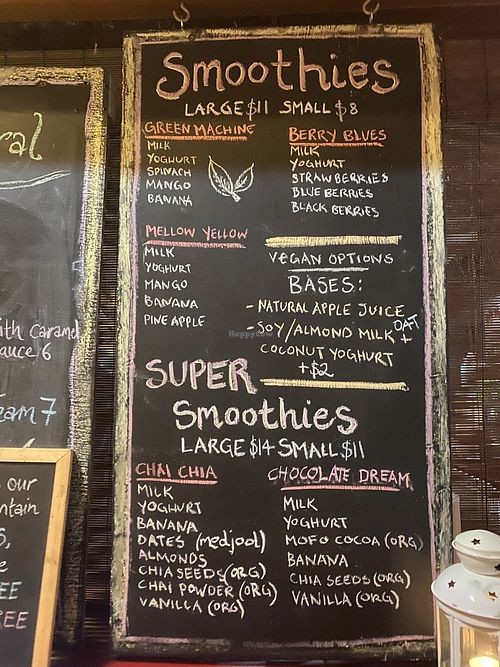 Smoothies
LARGE $11 SMALL $8
GREEN MACHINE
MILK
YOGHURT
SPINACH
MANGO
BANANA
BERRY BLUES
MILK
YOGHURT
STRAWBERRIES
BLUEBERRIES
BLACK BERRIES
MELLOW YELLOW
MILK
YOGHURT
MANGO
BANANA
PINEAPPLE
VEGAN OPTIONS
BASES:
- NATURAL APPLE JUICE
- SOY/ALMOND MILK OAT +
COCONUT YOGHURT
+$2
SUPER
Smoothies
LARGE $14 SMALL $11
CHAI CHIA
MILK
YOGHURT
BANANA
DATES (medjool)
ALMONDS
CHIA SEEDS (ORG)
CHAI POWDER (ORG)
VANILLA (ORG)
CHOCOLATE DREAM
MILK
YOGHURT
MOFO COCOA (ORG)
BANANA
CHIA SEEDS (ORG)
VANILLA (ORG)
ral
ith caramel
auce 6
eam 7
our
ntain
S,
e
EE
REE
HappyCow